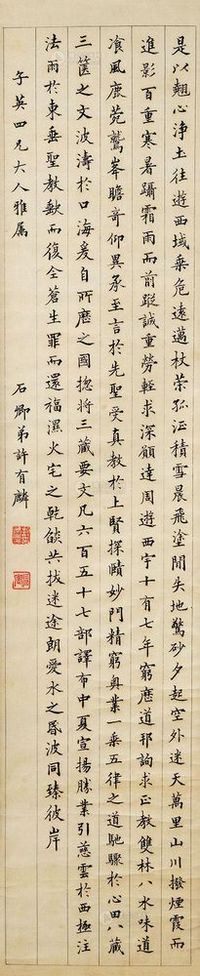 是以翹心淨土往遊西域乗危遠邁杖䇿孤征積雪晨飛塗間失地驚砂夕起空外迷天萬里山川撥煙霞而
進影百重寒暑躡霜雨而前蹤誠重勞輕求深願達周遊西宇十有七年窮歷道邦詢求正教雙林八水味道
飡風鹿菀鷲峯瞻竒仰異承至言於先聖受真教於上賢探賾妙門精窮奥業一乗五律之道馳驟於心田八藏
三篋之文波濤於口海爰自所歷之國揔將三藏要文凡六百五十七部譯布中夏宣揚勝業引慈雲於西極注
法雨於東垂聖教缺而復全蒼生罪而還福濕火宅之乾燄共拔迷途朗愛水之昏波同臻彼岸
午英四兄大人雅属
石卿弟許有麟